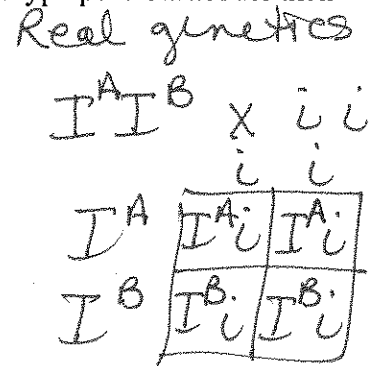 Real genetics
I^A I^B x i i
i i
I^A I^A i I^A i
I^B I^B i I^B i